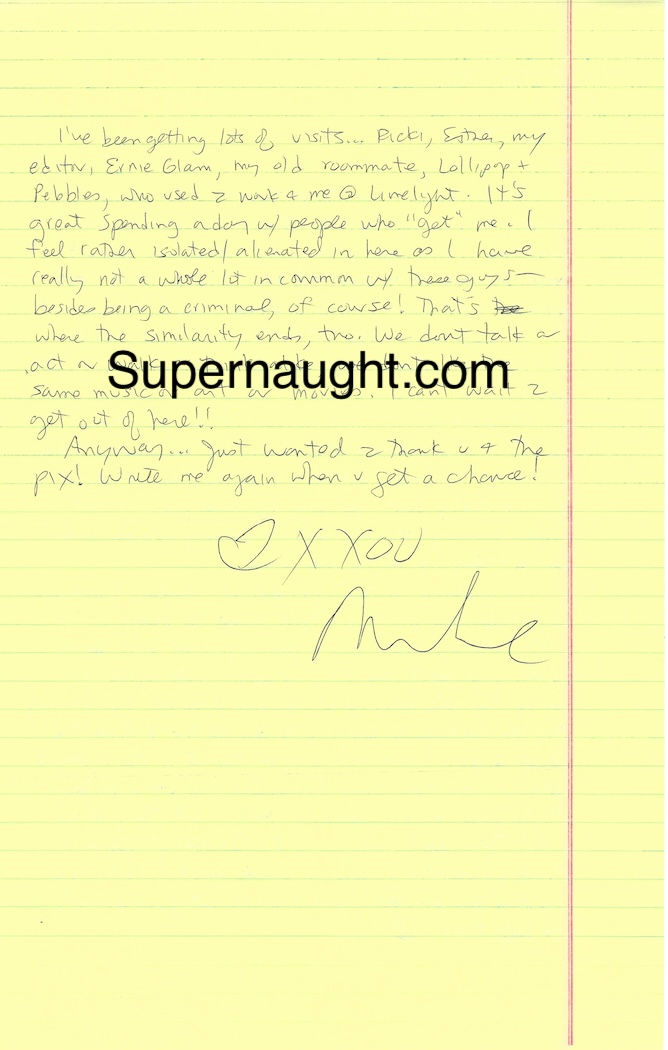 I've been getting lots of visits... Ricki, Esther, my
editor, Ernie Glam, my old roommate, Lollipop +
Pebbles, who used 2 work 4 me @ Limelyht. It's
great spending a day w/ people who "get" me. I
feel rather isolated/alienated in here as I have
really not a whole lot in common w/ these guys—
besides being a criminal, of course! That's
where the similarity ends, tho. We dont talk or
act or walk
Supernaught.com
same music or art or movies. I cant wait 2
get out of here!!
Anyway... Just wanted 2 thank u 4 the
pix! Write me again when u get a chance!
♡ X X O U